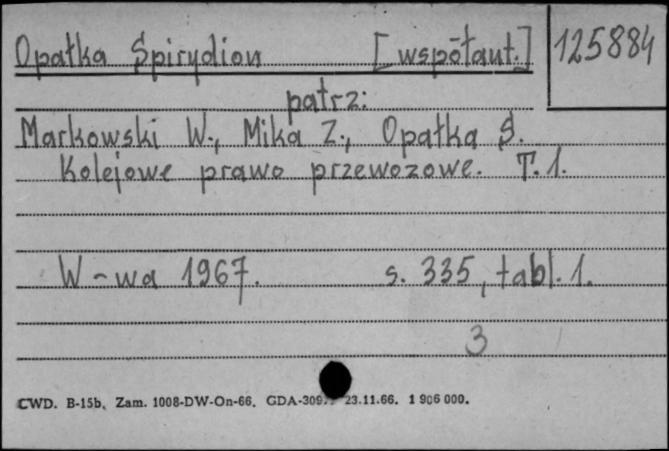 Opałka Spirydion [współaut.] 125884
patrz:
Markowski W., Mika Z., Opałka S.
Kolejowe prawo przewozowe. T. 1.
W-wa 1967. s. 335, tabl. 1.
3
CWD. B-15b. Zam. 1008-DW-On-66. 23.11.66. 1 906 000.